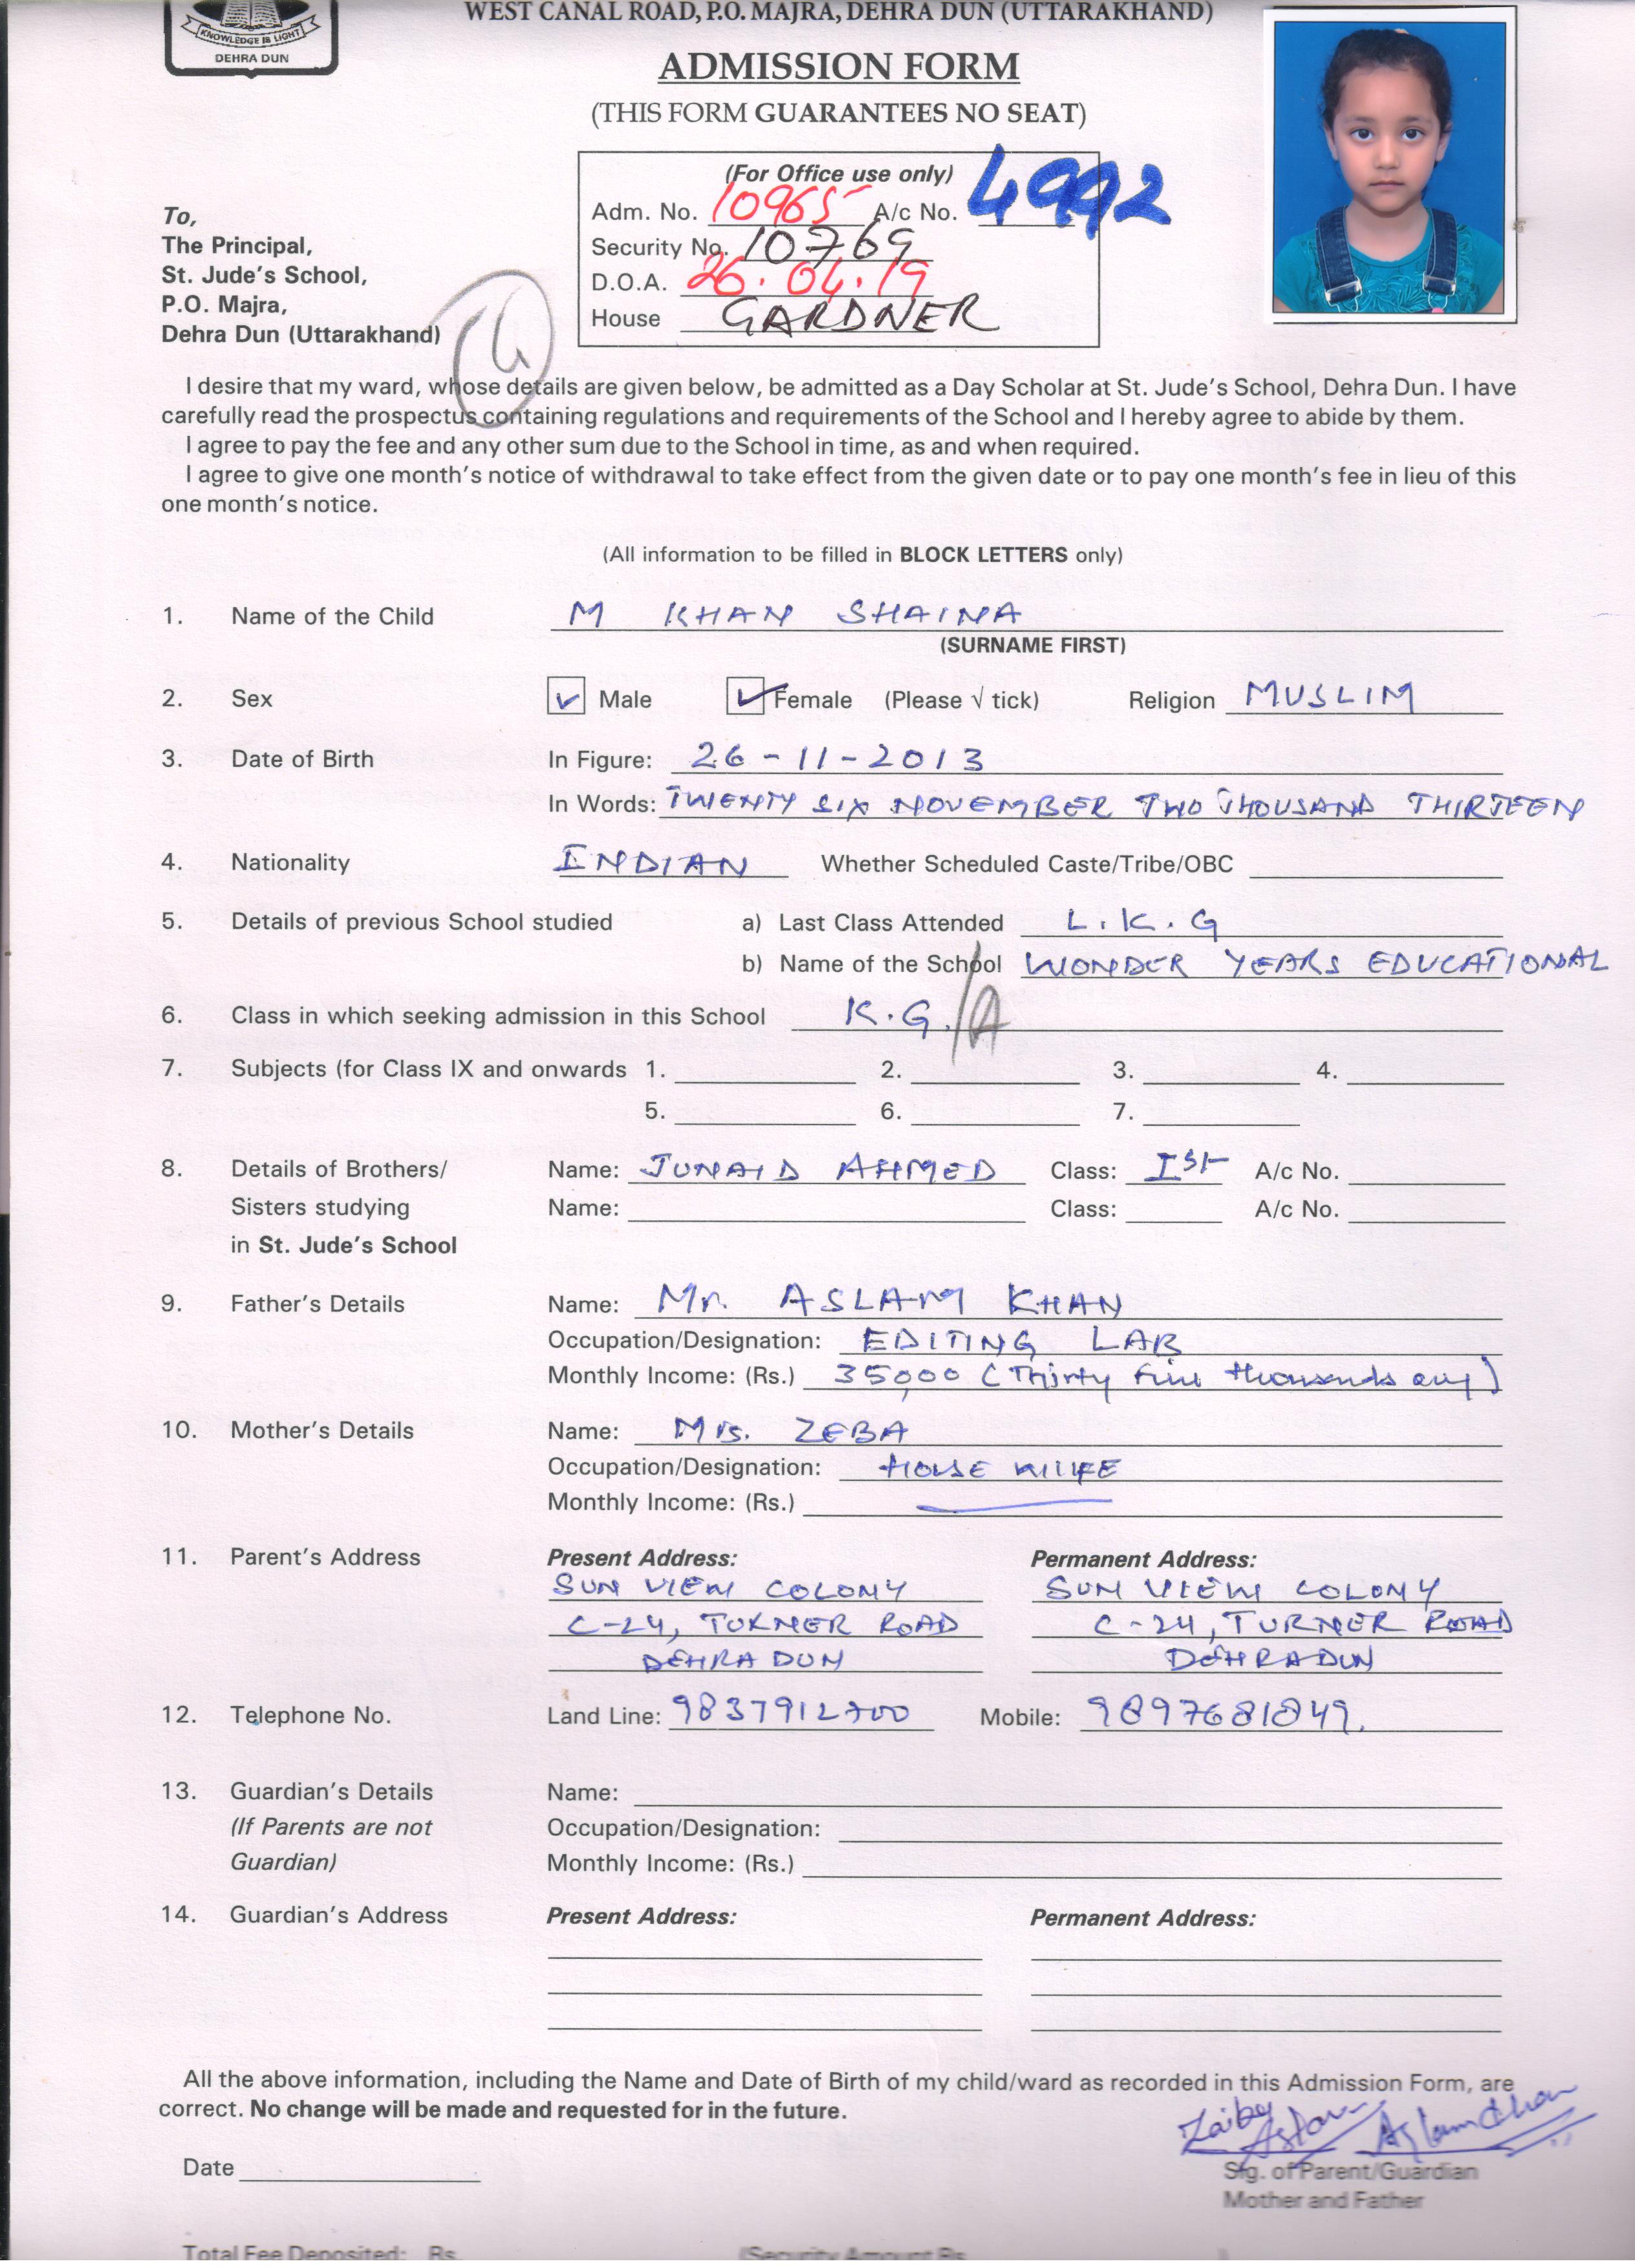 KNOWLEDGE IS LIGHT
DEHRA DUN
WEST CANAL ROAD, P.O. MAJRA, DEHRA DUN (UTTARAKHAND)
ADMISSION FORM
(THIS FORM GUARANTEES NO SEAT)
(For Office use only)
Adm. No. 10965 A/c No. 4992
Security No. 10769
D.O.A. 26.04.19
House GARDNER
To,
The Principal,
St. Jude's School,
P.O. Majra,
Dehra Dun (Uttarakhand)
I desire that my ward, whose details are given below, be admitted as a Day Scholar at St. Jude's School, Dehra Dun. I have
carefully read the prospectus containing regulations and requirements of the School and I hereby agree to abide by them.
I agree to pay the fee and any other sum due to the School in time, as and when required.
I agree to give one month's notice of withdrawal to take effect from the given date or to pay one month's fee in lieu of this
one month's notice.
(All information to be filled in BLOCK LETTERS only)
1. Name of the Child M KHAN SHAINA
(SURNAME FIRST)
2. Sex ✓ Male ✓ Female (Please √ tick) Religion MUSLIM
3. Date of Birth In Figure: 26-11-2013
In Words: TWENTY SIX NOVEMBER TWO THOUSAND THIRTEEN
4. Nationality INDIAN Whether Scheduled Caste/Tribe/OBC
5. Details of previous School studied a) Last Class Attended L.K.G
b) Name of the School WONDER YEARS EDUCATIONAL
6. Class in which seeking admission in this School K.G./A
7. Subjects (for Class IX and onwards 1. 2. 3. 4.
5. 6. 7.
8. Details of Brothers/ Name: JUNAID AHMED Class: Ist A/c No.
Sisters studying Name: Class: A/c No.
in St. Jude's School
9. Father's Details Name: Mr. ASLAM KHAN
Occupation/Designation: EDITING LAB
Monthly Income: (Rs.) 35,000 (Thirty five thousands only)
10. Mother's Details Name: Mrs. ZEBA
Occupation/Designation: HOUSE WIFE
Monthly Income: (Rs.)
11. Parent's Address Present Address: Permanent Address:
SUN VIEW COLONY SUN VIEW COLONY
C-24, TURNER ROAD C-24, TURNER ROAD
DEHRADUN DEHRADUN
12. Telephone No. Land Line: 9837912700 Mobile: 9897681849.
13. Guardian's Details Name:
(If Parents are not Occupation/Designation:
Guardian) Monthly Income: (Rs.)
14. Guardian's Address Present Address: Permanent Address:
All the above information, including the Name and Date of Birth of my child/ward as recorded in this Admission Form, are
correct. No change will be made and requested for in the future.
Aslam Khan
Date
Sig. of Parent/Guardian
Mother and Father
Total Fee Deposited: Rs. (Security Amount Rs. )